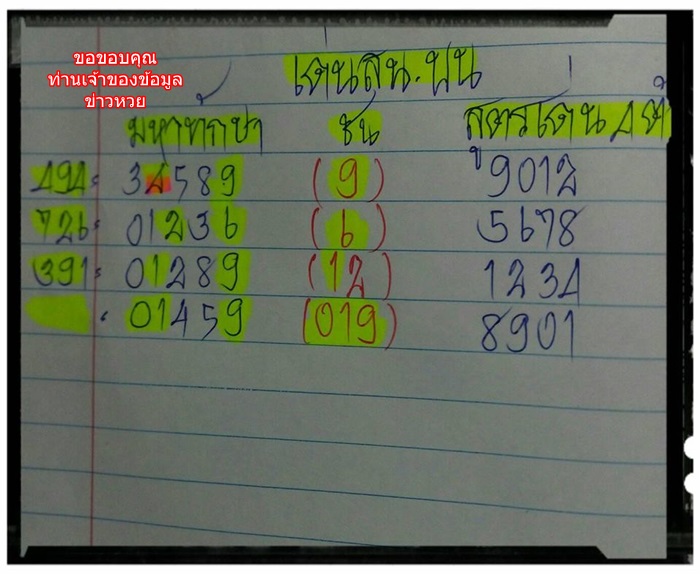 ขอขอบคุณ
ท่านเจ้าของข้อมูล
ข่าวหวย
เด่นสิน.ปน
มหาทักษา ชน สูตรเด่น 4 ตัว
494= 34589 (9) 9012
726= 01236 (6) 5678
391= 01289 (12) 1234
01459 (019) 8901